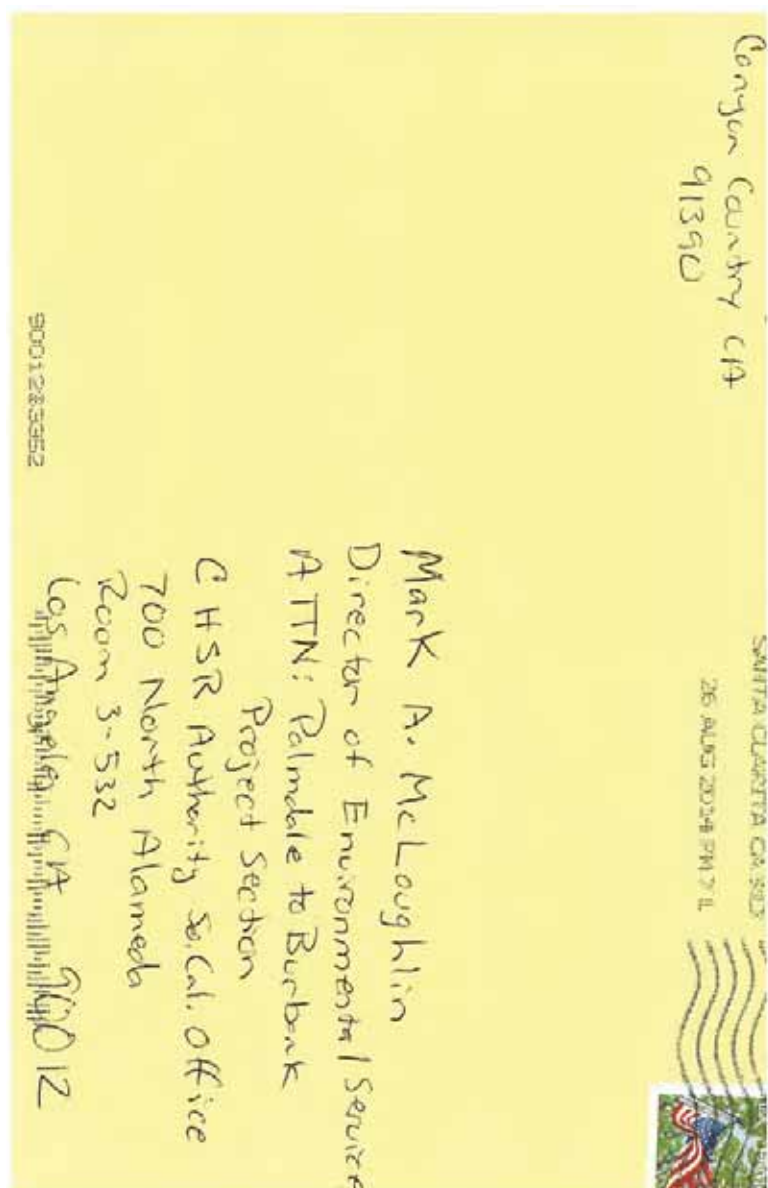 Canyon Country CA
91390
SANTA CLARITA CA 913
26 AUG 2014 PM 7 L
Mark A. McLoughlin
Director of Environmental Services
ATTN: Palmdale to Burbank
Project Section
CHSR Authority So. Cal. Office
700 North Alameda
Room 3-532
Los Angeles CA 90012
90012$3352